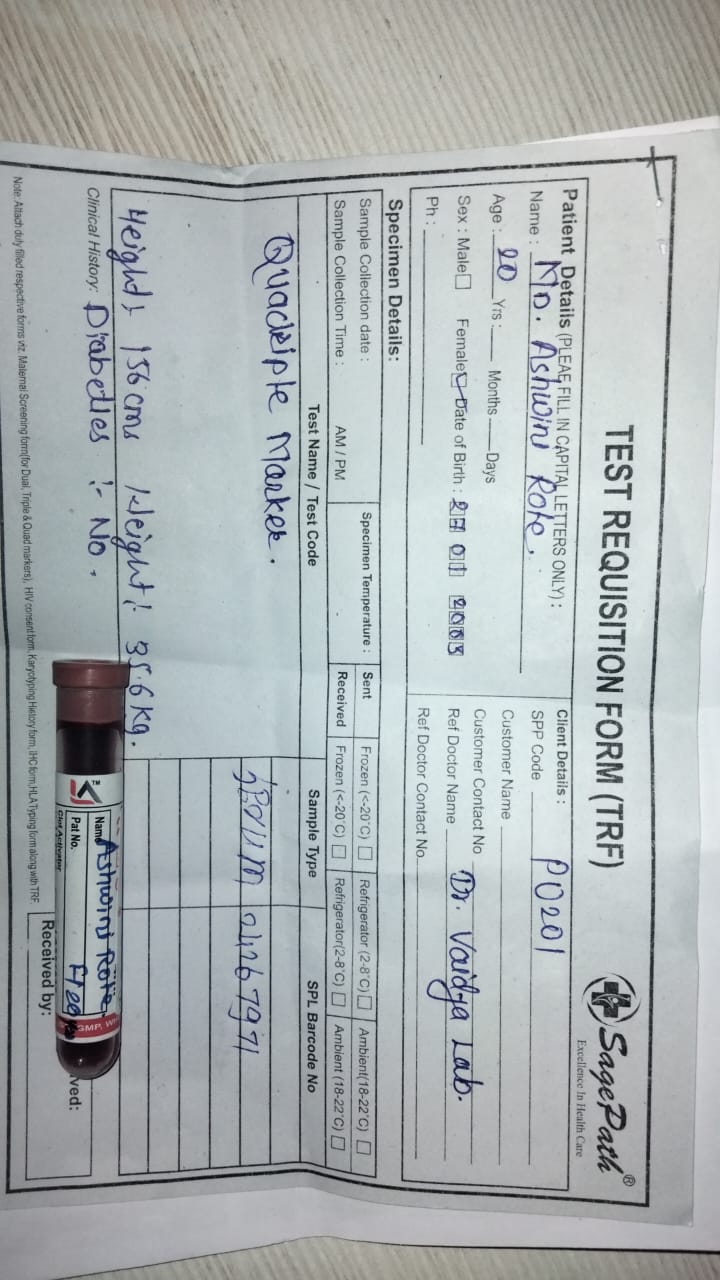 TEST REQUISITION FORM (TRF)
SagePath®
Excellence In Health Care
Patient Details (PLEAE FILL IN CAPITAL LETTERS ONLY) :
Name : Mo. Ashwini Rote.
Age : 20 Yrs : Months Days
Sex : Male Female Date of Birth : 27 01 2003
Ph :
Client Details :
SPP Code PO201
Customer Name
Customer Contact No
Ref Doctor Name Dr. Vaidya Lab.
Ref Doctor Contact No.
Specimen Details:
Sample Collection date : Specimen Temperature : Sent Frozen (<-20°C) Refrigerator (2-8°C) Ambient(18-22°C)
Sample Collection Time : AM / PM Received Frozen (<-20°C) Refrigerator(2-8°C) Ambient (18-22°C)
Test Name / Test Code Sample Type SPL Barcode No
Quadriple Marker. 24267971
Height: 156 cms Weight:- 35.6 kg.
Clinical History: Diabetles :- No.
Note: Attach duly filled respective forms viz. Maternal Screening form(for Dual, Triple & Quad markers), HIV consent form, Karyotyping History form, IHC form, HLA Typing form along with TRF.
Received by:
ved:
TM
Name Ashwini Rote
Pat No.
Clot Activator
GMP, W